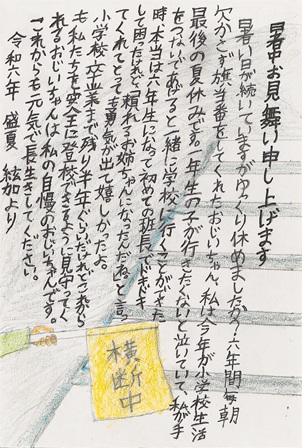 暑中お見舞い申し上げます
暑い日が続いていますがゆっくり休めましたか?六年間毎朝
欠かさず旗当番をしてくれたおじいちゃん。私は今年が小学校生活
最後の夏休みです。一年生の子が行きたくないと泣いていて、私が手
をつないであげると一緒に学校に行くことができた
時、本当は六年生になって初めての班長でドキドキ
して困ったけれど「頼れるお姉ちゃんになったんだね」と言っ
てくれてとても勇気が出て嬉しかったよ。
小学校卒業まで残り半年ぐらいだけれどこれから
も私たちを安全に登校できるように見守ってく
れるおじいちゃんは私の自慢のおじいちゃんです。
これからも元気で長生きしてください。
令和六年 盛夏 絃加より
横断中